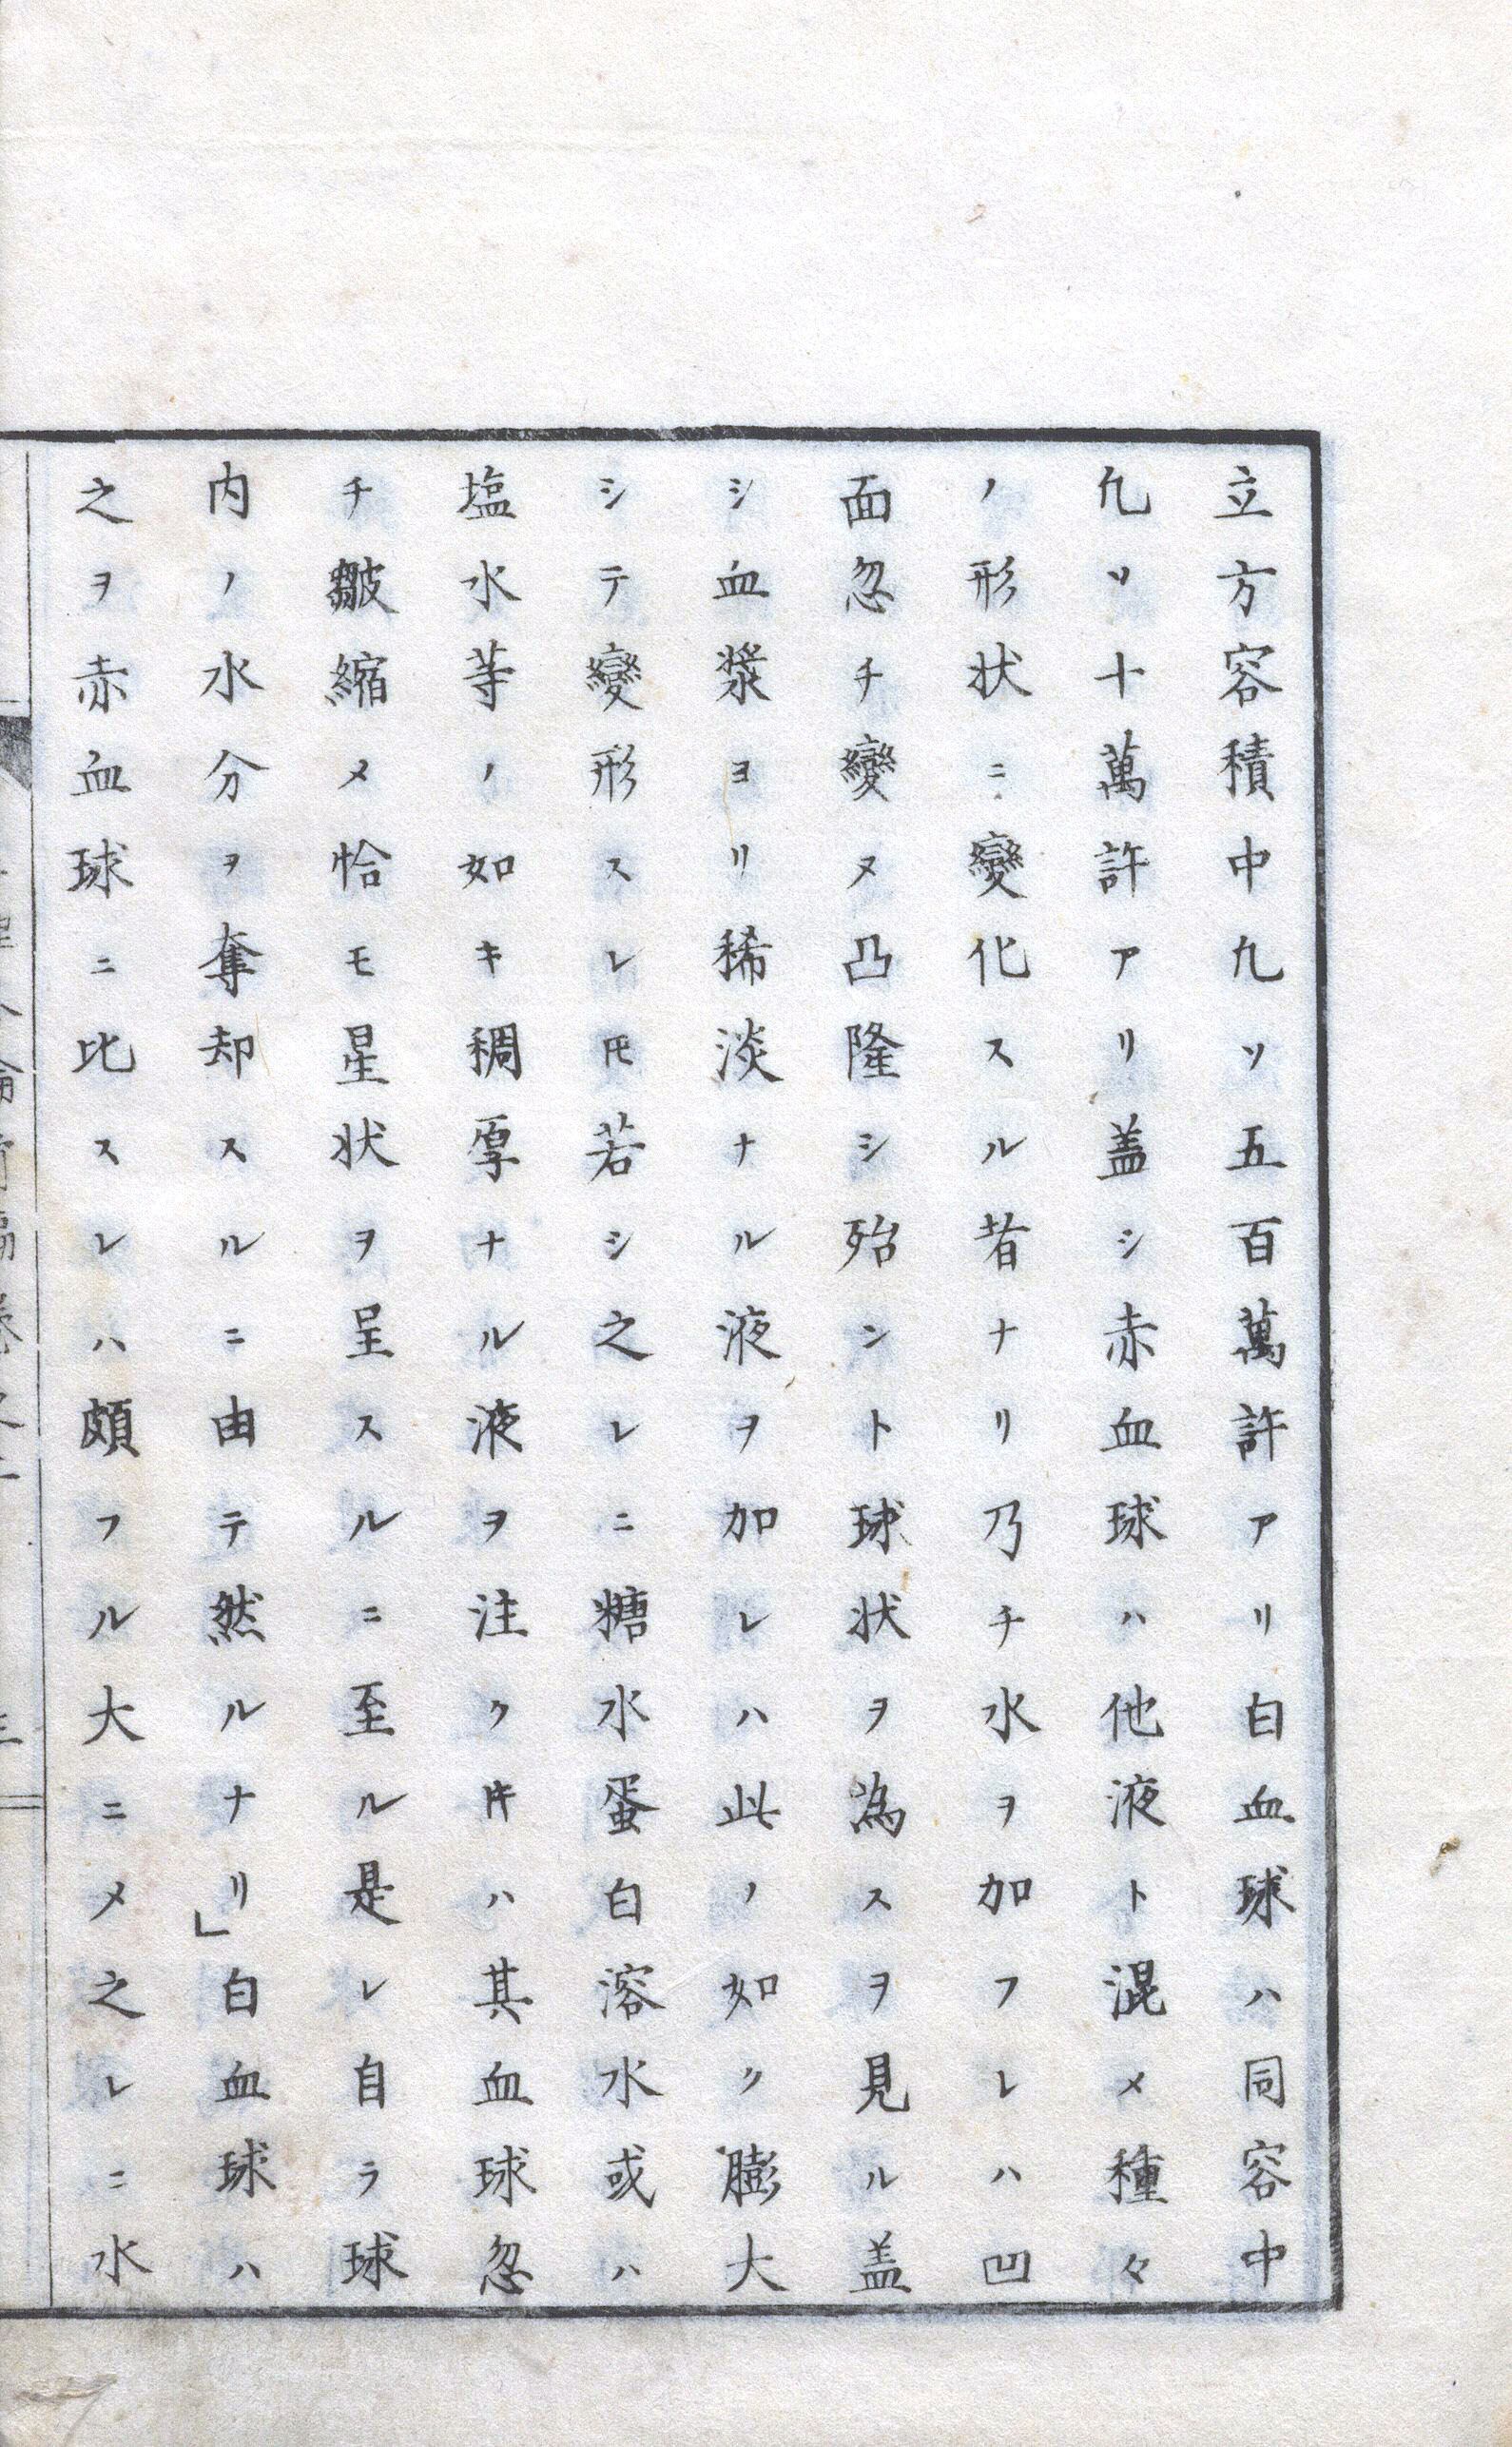 立方容積中凢ソ五百萬許アリ白血球ハ同容中
凢ソ十萬許アリ盖シ赤血球ハ他液ト混メ種々
ノ形状ニ變化スル者ナリ乃チ水ヲ加フレハ凹
面忽チ變ヌ凸隆シ殆ント球状ヲ為スヲ見ル盖
シ血漿ヨリ稀淡ナル液ヲ加レハ此ノ如ク膨大
シテ變形スレ𪜈若シ之レニ糖水蛋白溶水或ハ
塩水等ノ如キ稠厚ナル液ヲ注ク𪜈ハ其血球忽
チ皺縮メ恰モ星状ヲ呈スルニ至ル是レ自ラ球
内ノ水分ヲ奪却スルニ由テ然ルナリ」白血球ハ
之ヲ赤血球ニ比スレハ頗フル大ニメ之レニ水